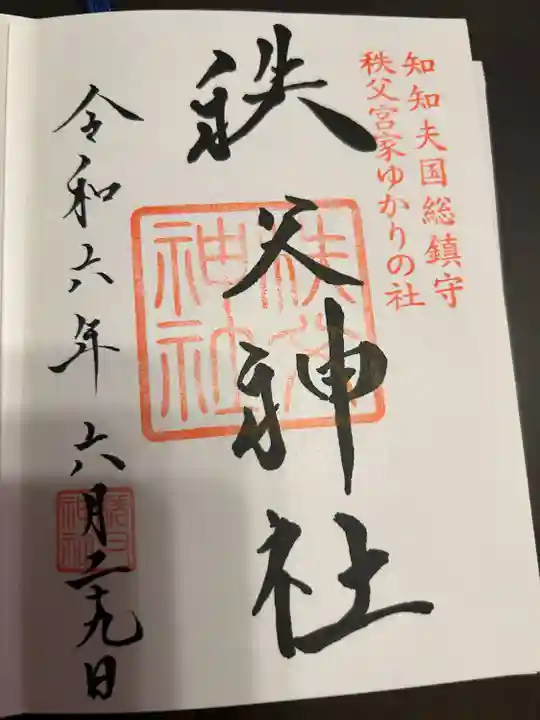 知知夫国総鎮守
秩父宮家ゆかりの社
秩父神社
秩父
神社
令和六年六月二十九日
秩父
神社